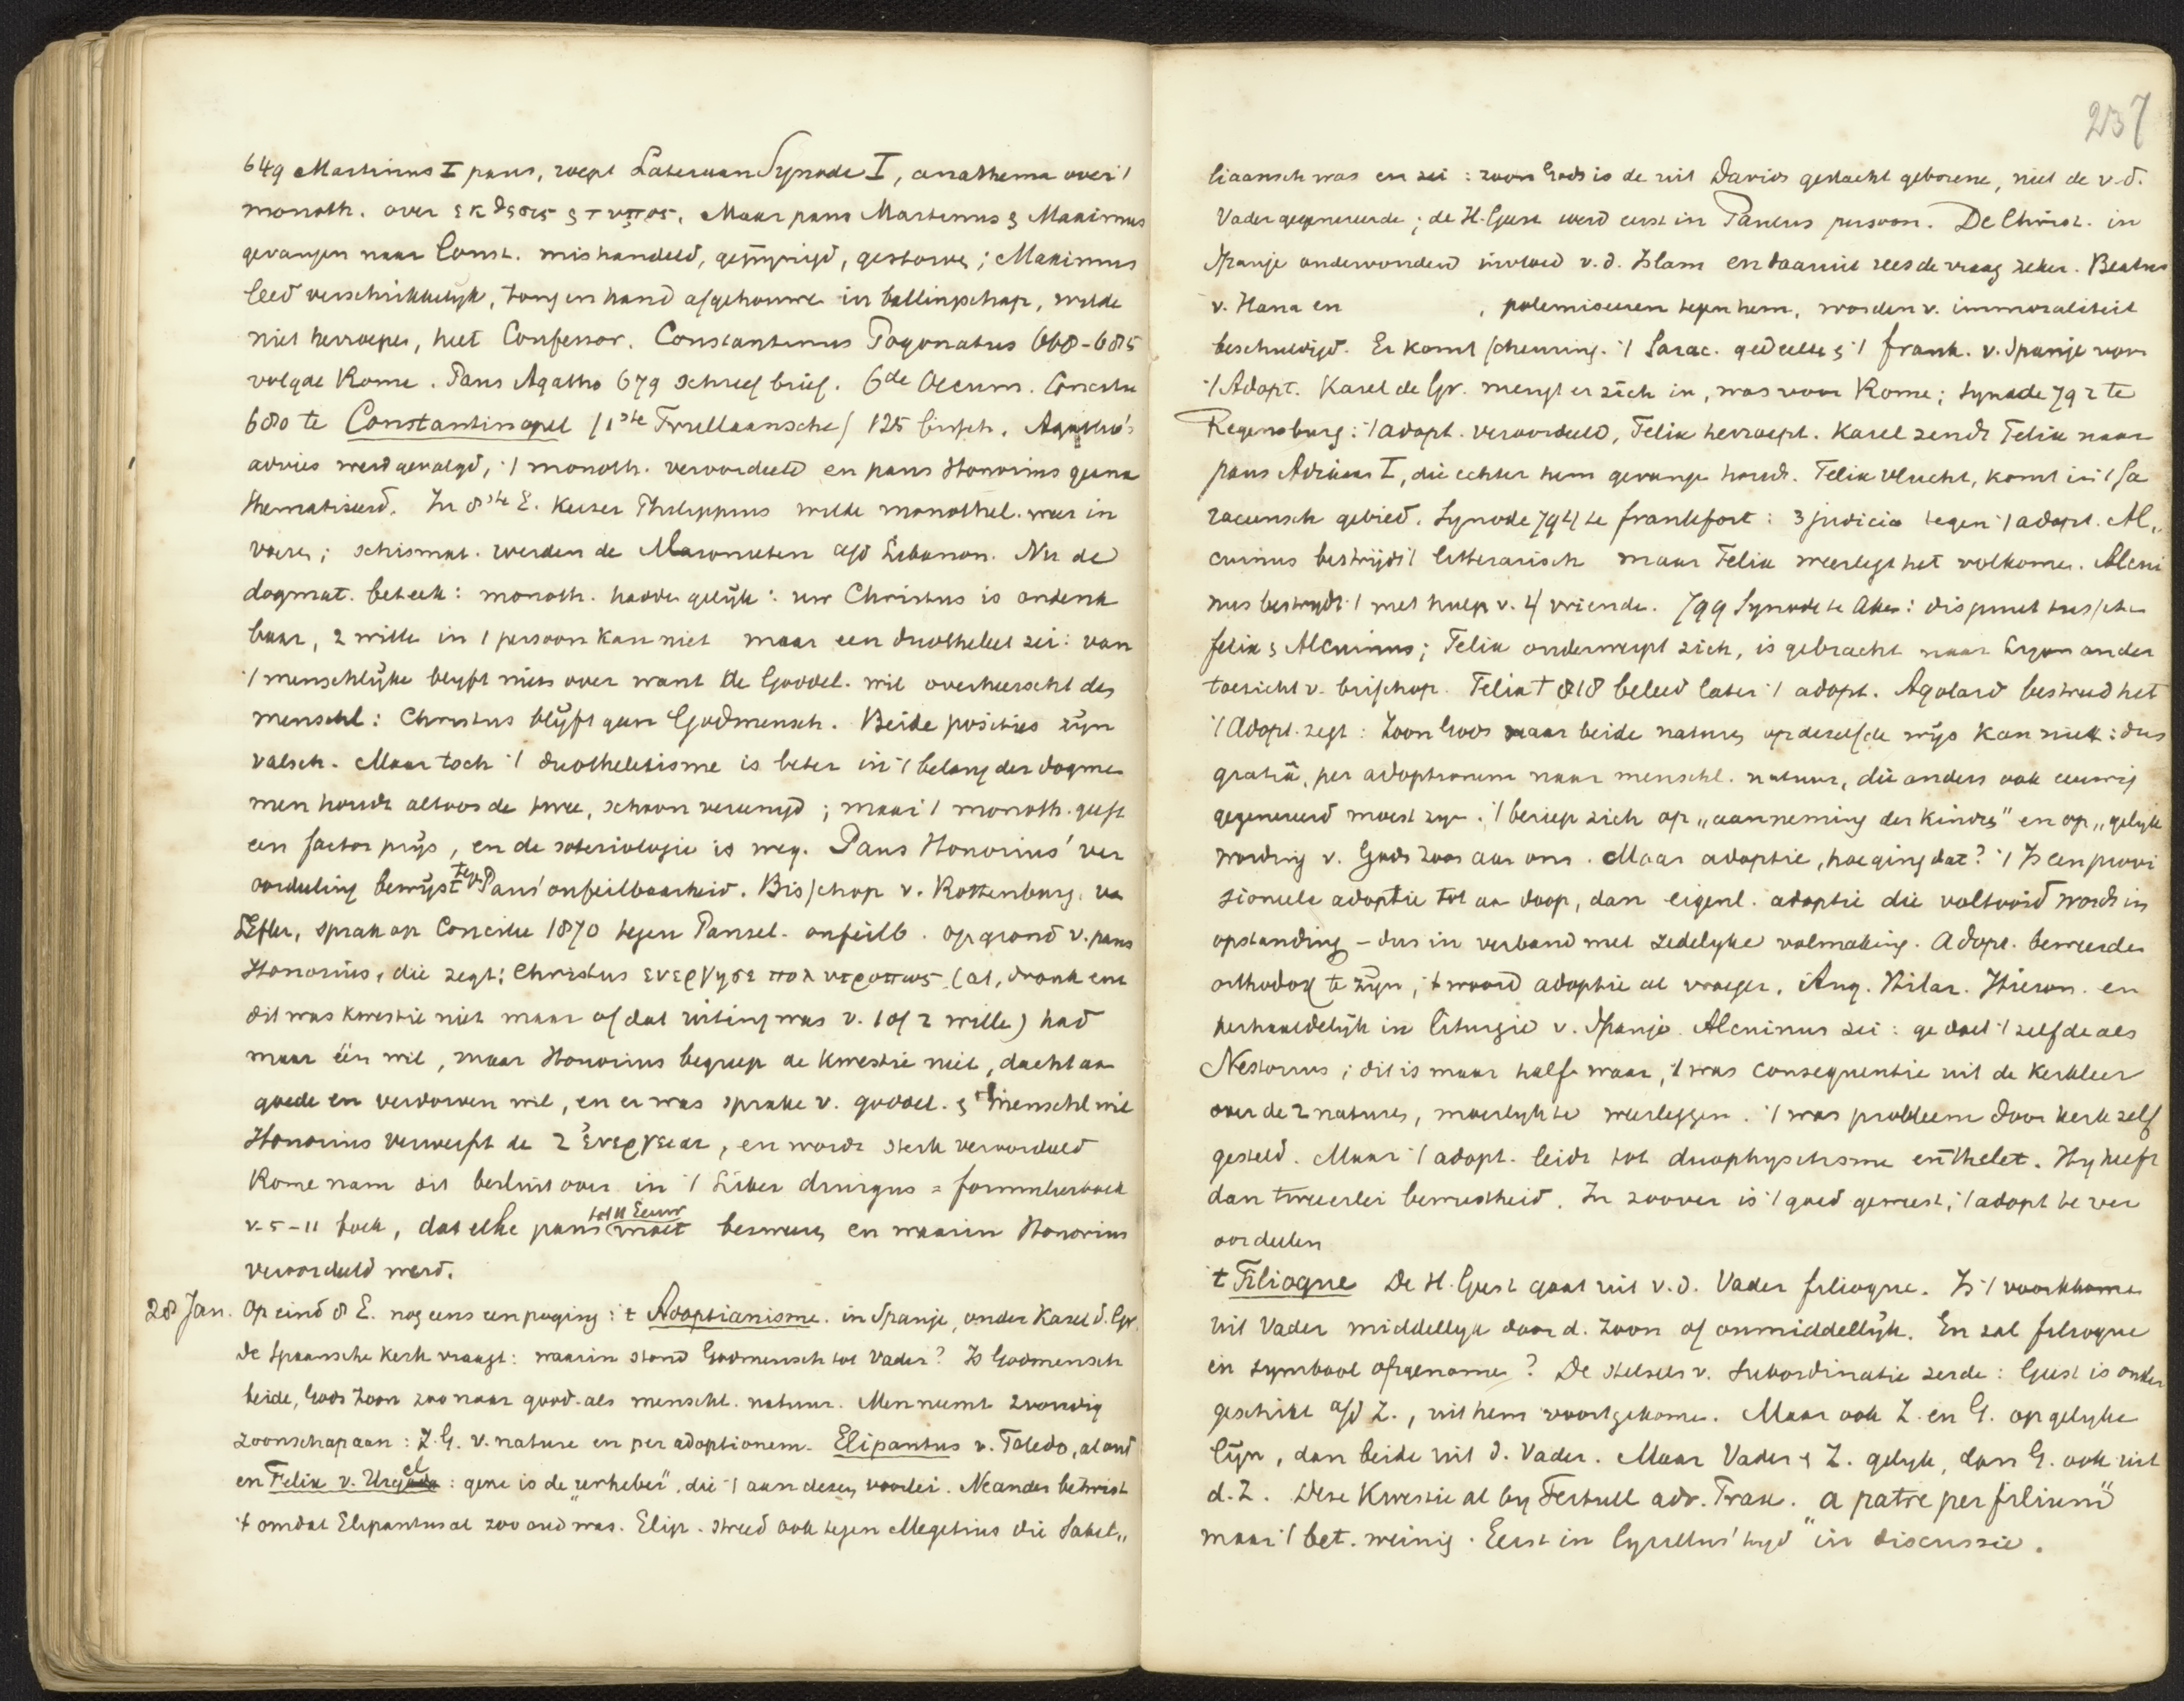 649 Martinus I paus, roept Lateraan Synode I, anathema over 't
monoth. over εκθεσις & τυπος. Maar paus Martinus & Maximus
gevangen naar Const. mishandeld, gepijnigd, gestorven; Maximus
leed verschrikkelyk, tong en hand afgehouwen in ballingschap, wilde
niet herroepen, heet Confessor. Constantinus Pogonatus 668-685
volgde Rome. Paus Agatho 679 schreef brief. 6de Oecum. Concilie
680 te Constantinopel /1ste Trullaansche/ 125 bissch. Agatho's
advies werd gevolgd, 't monoth. veroordeeld en paus Honorius geana
thematiseerd. In 8ste E. Keizer Philippus wilde monothel. weer in
voeren; schismat. werden de Maronieten a/d Libanon. Nu de
dogmat. beteek: monoth. hadden gelijk: uw Christus is ondenk
baar, 2 wille in 1 persoon kan niet maar een duotheleet zei: van
't menschlijke blyft niets over want de Goddel. wil overheerscht de
menschl: Christus blijft geen Godmensch. Beide posities zijn
valsch. Maar toch 't duotheletisme is beter in 't belang der dogme
men houdt altoos de twee, schoon vereenigd; maar 't monoth. geeft
een factor prijs, en de soteriologie is weg. Paus Honorius' ver
oordeeling bewijst tev Paus' onfeilbaarheid. Bisschop v. Rottenburg. v
Hefler, sprak op Concilie 1870 tegen Pausel. onfeilb. op grond v. paus
Honorius, die zegt: Christus ενεργησε πολυτροπως (at, dronk enz
dit was kwestie niet maar of dat uiting was v. 1 of 2 wille) had
maar één wil, maar Honorius begreep de kwestie niet, dacht aa
goede en verdorven wil, en er was sprake v. goddel. & menschl wil
Honorius verwerpt de 2 ἐνεργειαι, en wordt sterk veroordeeld
Rome nam dit besluit over in 't Liber diurgus = formulierboek
v. 5-11 boek, dat elke paus tot 11 Eeuw moet bezweren en waarin Honorius
veroordeeld werd.
28 Jan. Op eind 8 E. nog eens een poging: 't Adoptianisme. in Spanje, onder Karel d. Gr.
de Spaansche kerk vraagt: waarin stond Godmensch tot Vader? Is Godmensch
beide, Gods Zoon zoo naar godd. als menschl. natuur. Men neemt 2voudig
zoonschap aan: Z. G. v. nature en per adoptionem. Elipantus v. Toledo, al oud
en Felix v. Urgel: gene is de „urheber", die 't aan dezen voorlei. Neander betwist
't omdat Elipantus al zoo oud was. Elip. streed ook tegen Megetius die Sabel„
237
liaansch was en zei: zoon Gods is de uit Davids geslacht geborene, niet de v.d.
Vader gegenereerde; de H. Geest werd eerst in Paulus persoon. De Christ. in
Spanje ondervonden invloed v. d. Islam en daaruit rees de vraag zeker. Beatus
v. Hana en , polemiseeren tegen hem, worden v. immoraliteit
beschuldigd. Er komt scheuring. 't Sarac. gedeelte & 't frank. v. Spanje voor
't Adopt. Karel de Gr. mengt er zich in, was voor Rome; Synode 792 te
Regensburg: 't adopt. veroordeeld, Felix herroept. Karel zendt Felix naar
paus Adriaan I, die echter hem gevange houdt. Felix vlucht, komt in 't Sa
raceensch gebied. Synode 794 te Frankfort: 3 judicia tegen 't adopt. Al„
cuinus bestrijdt 't litterarisch maar Felix weerlegt het volkome. Alcui
nus bestrydt 't met hulp v. 4 vriende. 799 Synode te Aken: dispuut tussche
Felix & Alcuinus; Felix onderwerpt zich, is gebracht naar Lyon onder
toezicht v. bisschop. Felix † 818 beleed later 't adopt. Agobard bestreed het
't Adopt. zegt: Zoon Gods naar beide naturen op dezelfde wijs kan niet: dus
gratiâ, per adoptionem naar menschl. natuur, die anders ook eeuwig
gegenereerd moest zijn. 't beriep zich op „aanneming der kindren" en op „gelijk
wording v. Gods Zoon aan ons. Maar adoptie, hoe ging dat? 't Is een provi
sioneele adoptie tot aa doop, dan eigenl. adoptie die voltooid wordt in
opstanding – dus in verband met zedelyke volmaking. Adopt. beweerden
orthodox te zijn, 't woord adoptie al vroeger, Aug. Hilar. Hieron. en
herhaaldelijk in liturgie v. Spanje. Alcuinus zei: ge doet 't zelfde als
Nestorius; dit is maar half waar, 't was consequentie uit de kerkleer
over de 2 naturen, moeilijk te weerleggen. 't was probleem door kerk zelf
gesteld. Maar 't adopt. leidt tot duophysitisme en thelet. Hy heeft
dan tweeerlei bewustheid. In zoover is 't goed geweest, 't adopt te ver
oordeelen
't Filioque De H. Geest gaat uit v. d. Vader filioque. Is 't voortkome
uit Vader middellyk door d. Zoon of onmiddellijk. En zal filioque
in symbool opgenomen? De stelsels v. Subordinatie zeide: Geest is onder
geschikt a/d Z., uit hem voortgekome. Maar ook Z. en G. op gelyke
lijn, dan beide uit d. Vader. Maar Vader & Z. gelyk, dan G. ook uit
d. Z. Deze Kwestie al by Tertull adv. Prax. „a patre per filium"
maar 't bet. weinig. Eerst in Cyrillus' tyd in discussie.